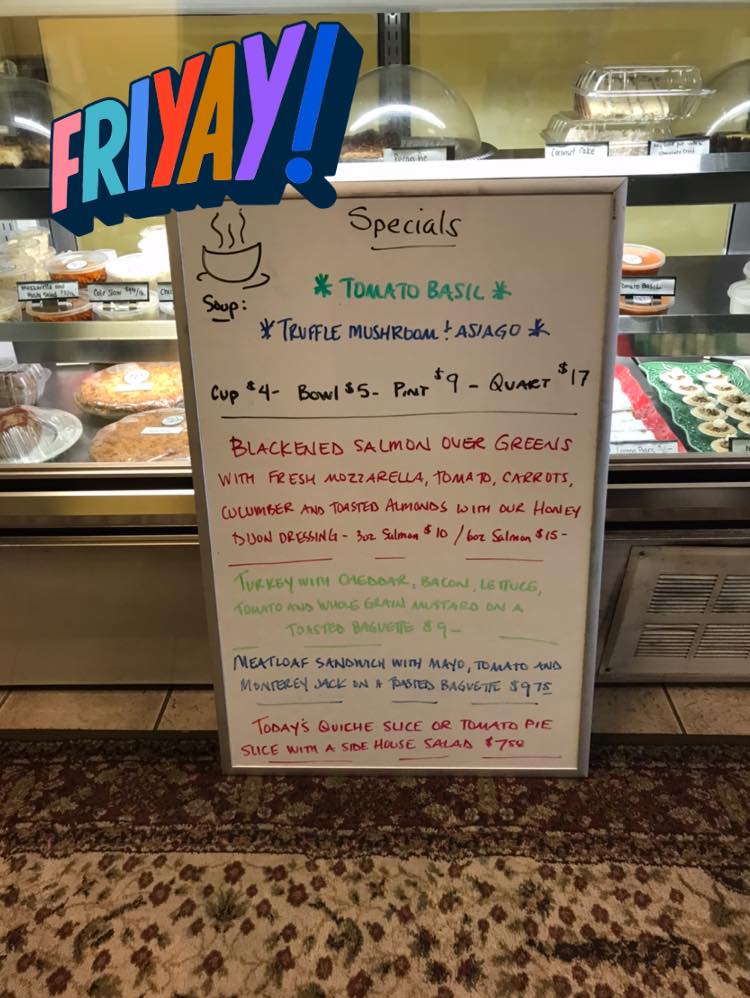 FRIYAY!
Coconut Cake
Specials
Soup:
* TOMATO BASIL *
* TRUFFLE MUSHROOM & ASIAGO *
CUP $4- BOWL $5- PINT $9 - QUART $17
BLACKENED SALMON OVER GREENS
WITH FRESH MOZZARELLA, TOMATO, CARROTS,
CUCUMBER AND TOASTED ALMONDS WITH OUR HONEY
DIJON DRESSING - 3oz Salmon $10 / 6oz Salmon $15-
TURKEY WITH CHEDDAR, BACON, LETTUCE,
TOMATO AND WHOLE GRAIN MUSTARD ON A
TOASTED BAGUETTE $9-
MEATLOAF SANDWICH WITH MAYO, TOMATO AND
MONTEREY JACK ON A TOASTED BAGUETTE $9.75
TODAY'S QUICHE SLICE OR TOMATO PIE
SLICE WITH A SIDE HOUSE SALAD $7.50
Mozzarella and
Cole Slaw
Tomato Basil